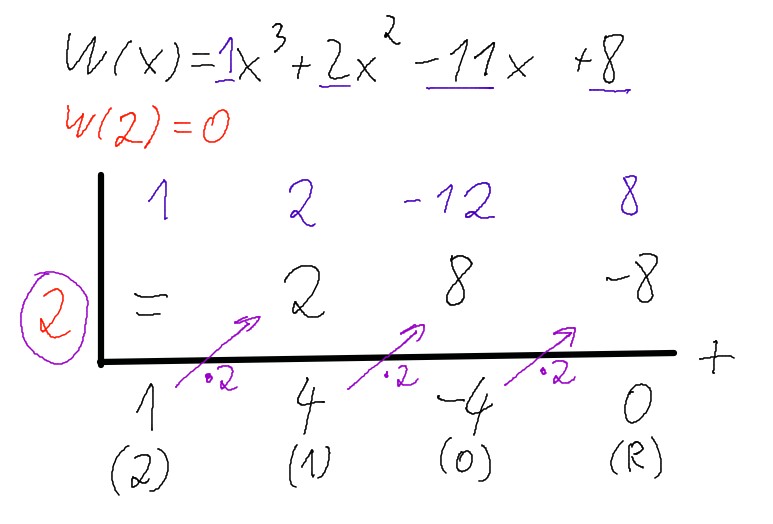 W(x)=1x³+2x²-11x +8
W(2)=0
1 2 -12 8
2 = 2 8 -8
·2 ·2 ·2 +
1 4 -4 0
(2) (1) (0) (R)